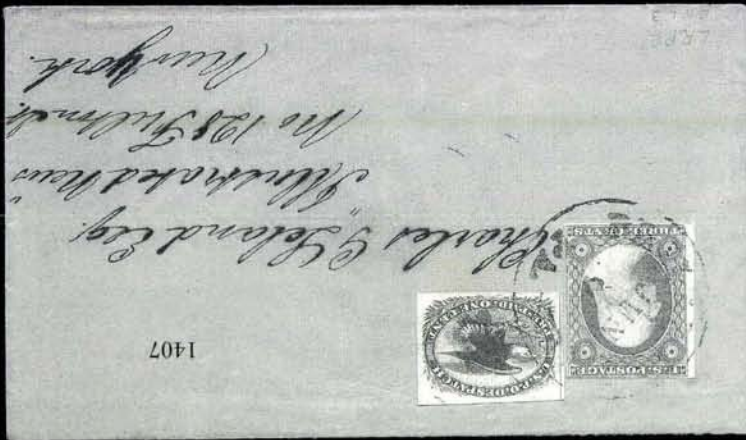 U.S. POSTAGE
THREE CENTS
U.S.P.O. DESPATCH
PRE-PAID ONE CENT
1407
Charles G Leland Esq.
"Illustrated News"
No 128 Fulton st.
New York.